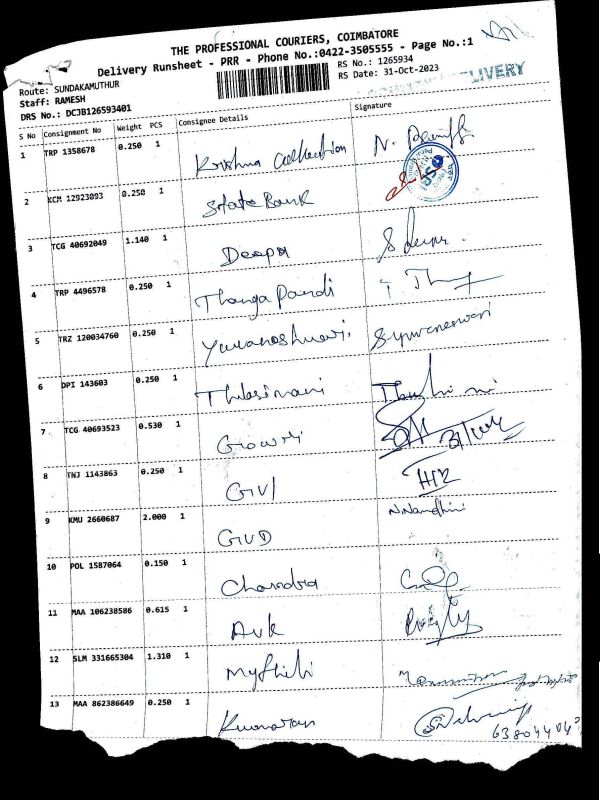 THE PROFESSIONAL COURIERS, COIMBATORE
Delivery Runsheet - PRR - Phone No.:0422-3505555 - Page No.:1
Route: SUNDAKAMUTHUR
Staff: RAMESH
DRS No.: DCJB126593401
RS No.: 1265934
RS Date: 31-Oct-2023
DELIVERY
S No Consignment No Weight PCS Consignee Details Signature
1 TRP 1358678 0.250 1 Krishna Collection
2 KCM 12923093 0.250 1 State Bank
3 TCG 40692049 1.140 1 Deepa
4 TRP 4496578 0.250 1 Thanga Pandi
5 TRZ 120034760 0.250 1 Yuvaneshwari
6 DPI 143603 0.250 1 Thulasimani
7 TCG 40693523 0.530 1 Gowri
8 TNJ 1143863 0.250 1 GIVI
9 KMU 2660687 2.000 1 GUD N.Nandhini
10 POL 1587064 0.150 1 Chandra
11 MAA 106238586 0.615 1 Avk
12 SLM 331665304 1.310 1
13 MAA 862386649 0.250 1 Kumaran